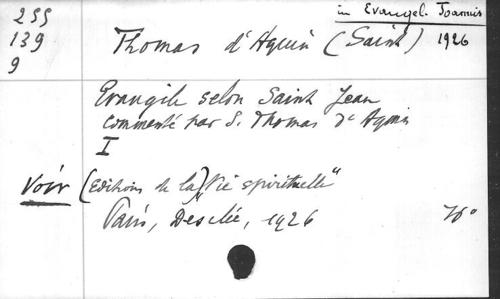 in Evangel. Joannis
255
139
9
Thomas d'Aquin (Saint) 1926
Evangile selon Saint Jean
commenté par S. Thomas d'Aquin
I
Voir (Editions de la "Vie spirituelle"
Paris, Desclée, 1926